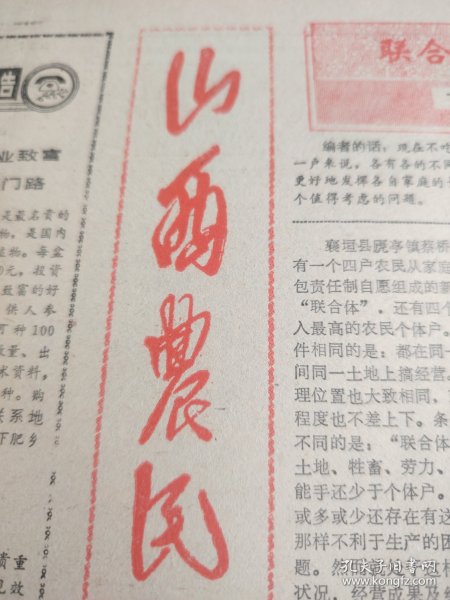 山西農民
联合
编者的话：现在不吃
一户来说，各有各的不同
更好地发挥各自家庭的
个值得考虑的问题。
襄垣县虒亭镇蔡桥
有一个四户农民从家庭
包责任制自愿组成的
“联合体”，还有四个
入最高的农民个体户。
件相同的是：都在同一
间同一土地上搞经营。
理位置也大致相同，
程度也不差上下。条
不同的是：“联合体
土地、牲畜、劳力、
能手还少于个体户。
或多或少还存在有这
那样不利于生产的困
题。然而
状况，经营成果及
业致富
门路
是最名贵的
物，是国内
植物。每盆
0元，投资
致富的好
供人参
可种100
数量、出
术资料，
种。购
联系地
下肥乡
贵重
见效
孔夫子旧书网